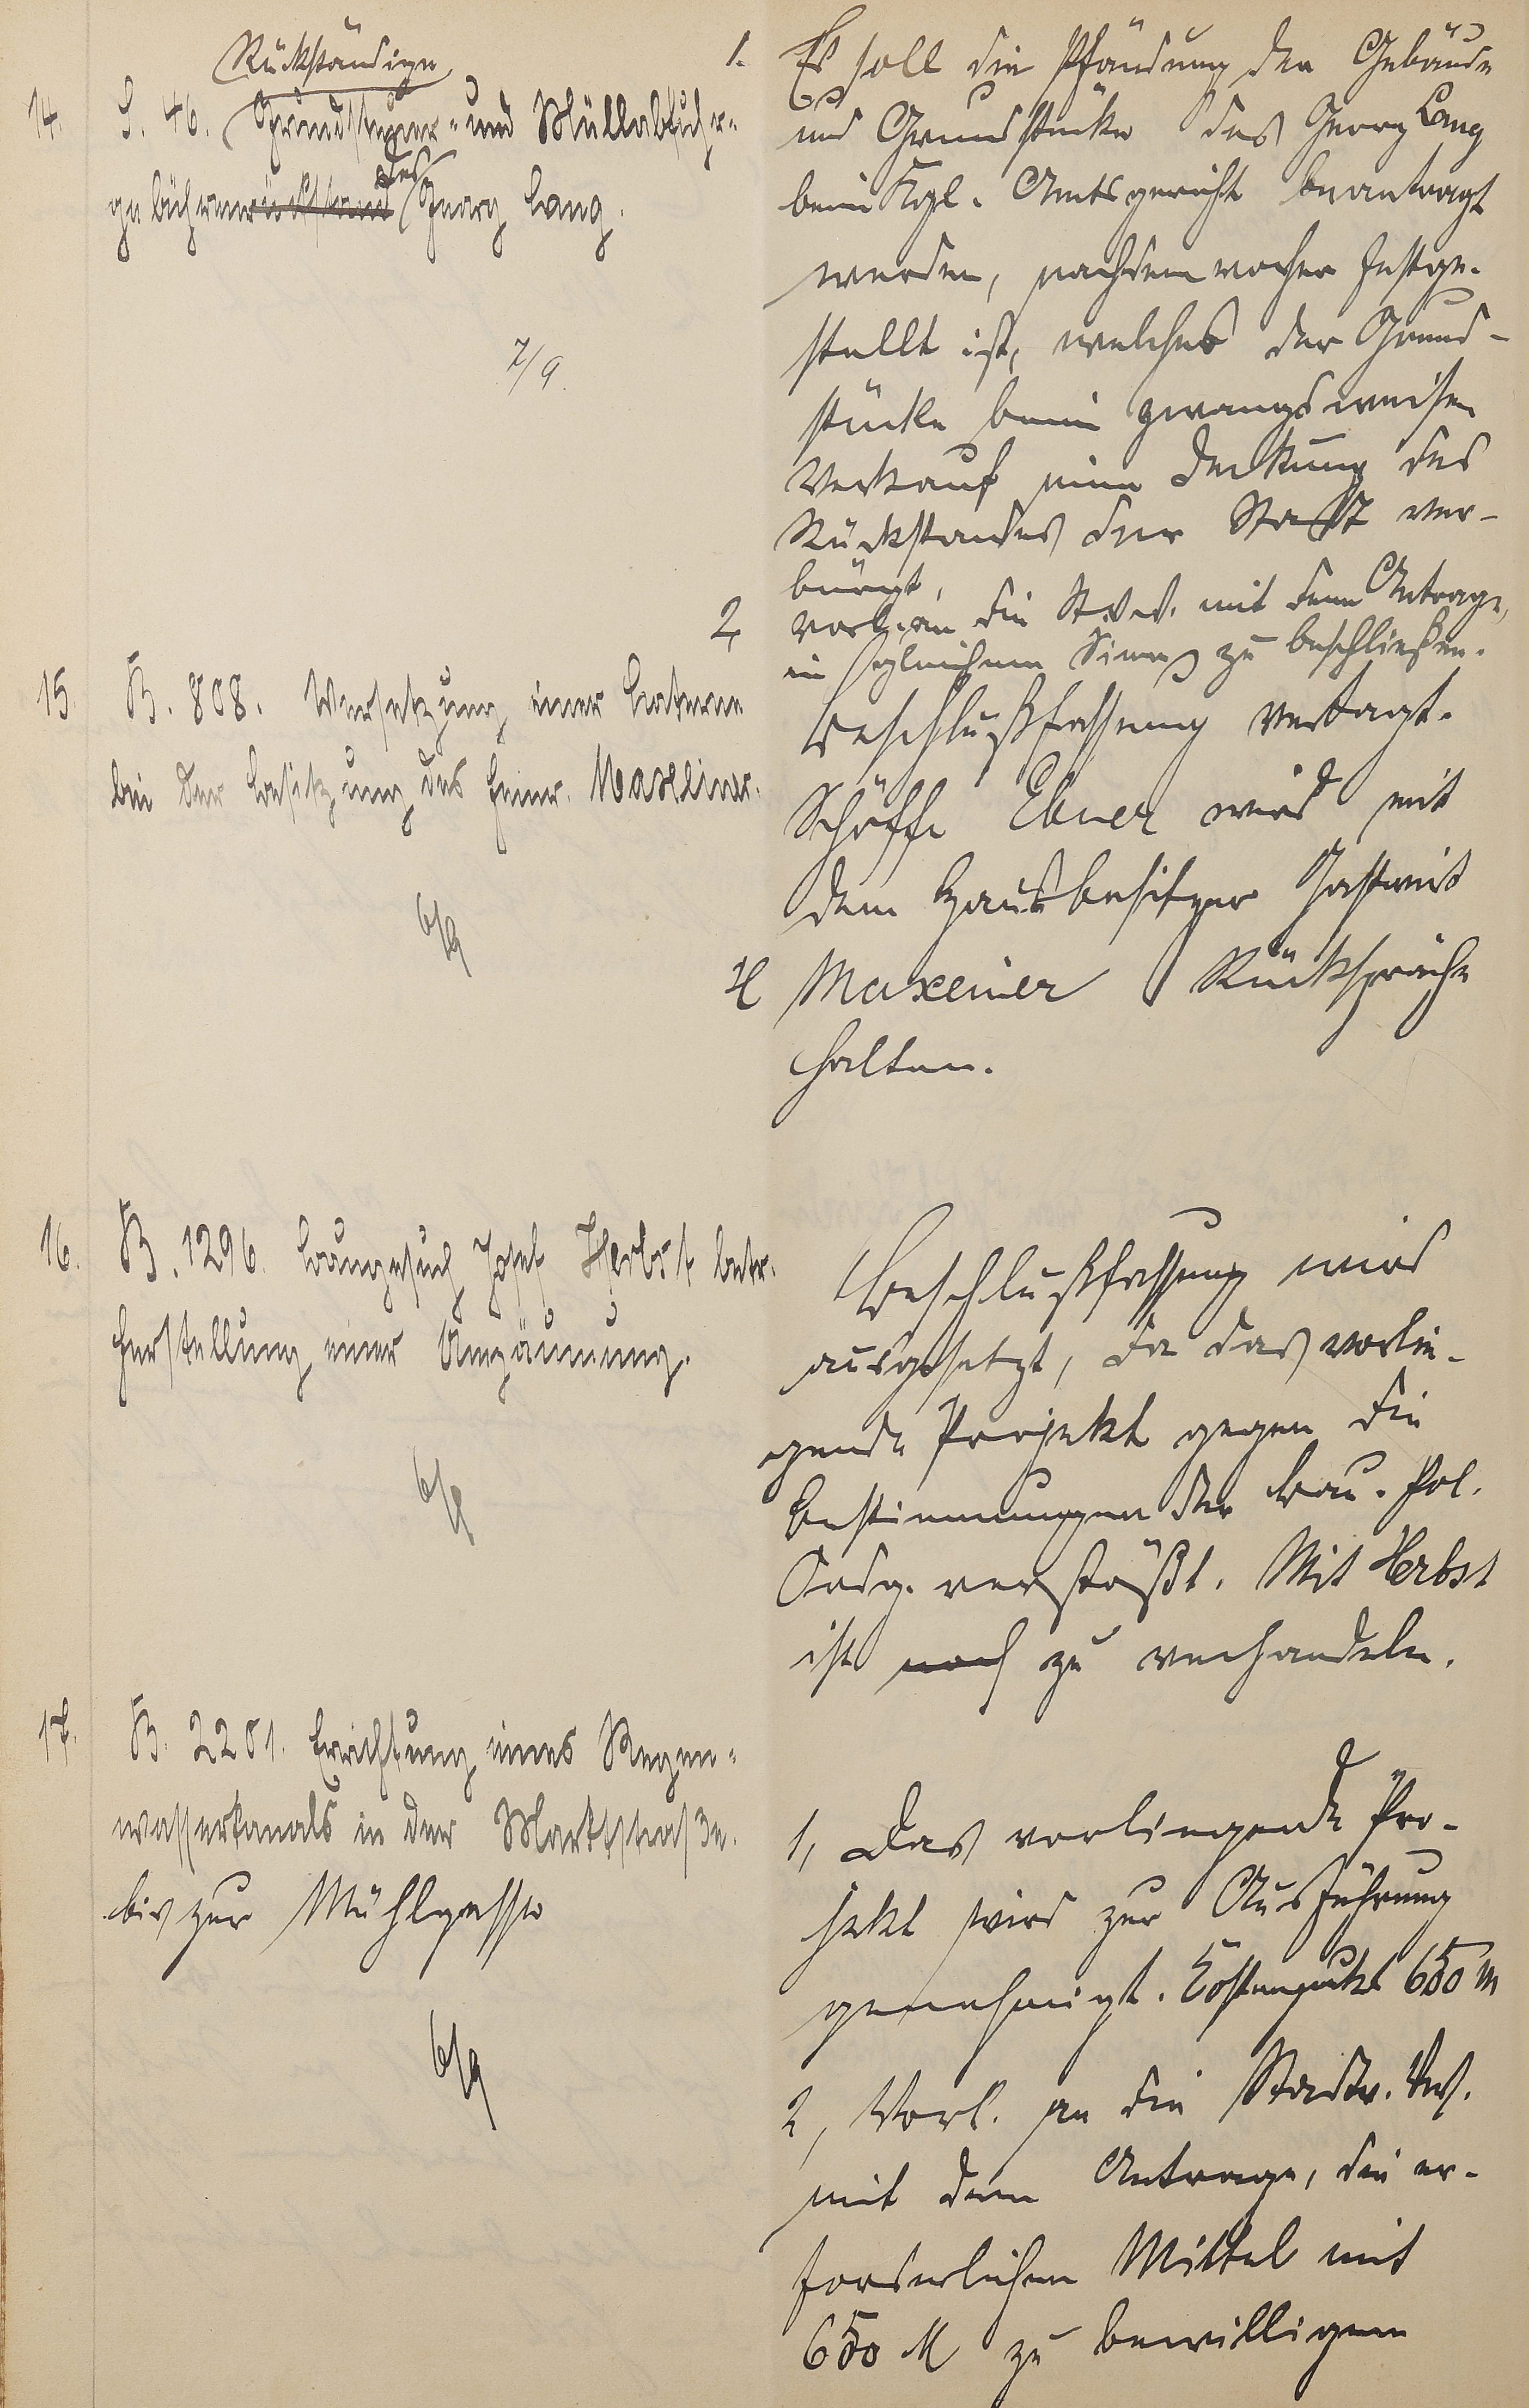 Rückständige
14. S. 46. Grundsteuer- und Müllabfuhr-
gebührenrückstand des Georg Lang.
7/9.
1. Es soll die Pfändung der Gebäude
und Grundstücke des Georg Lang
beim Kgl. Amtsgericht beantragt
werden, nachdem vorher festge-
stellt ist, welches der Grund-
stücke beim zwangsweisen
Verkauf eine Deckung des
Rückstandes der Stadt ver-
bürgt,
2, Vorl. an die St. V. V. mit dem Antrage,
in gleichem Sinne zu beschließen.
15. B. 808. Versetzung einer Laterne
bei der Besitzung des Heinr. Maxeiner.
6/9
Beschlußfassung vertagt.
Schöffe Ebner wird mit
dem Hausbesitzer Gastwirt
H Maxeiner Rücksprache
halten.
16. B. 1296. Baugesuch Josef Herbst betr.
Herstellung einer Umzäunung.
6/9
Beschlußfassung wird
ausgesetzt, da das vorlie-
gende Projekt gegen die
Bestimmungen der Bau-Pol.
Ordg. verstößt. Mit Herbst
ist noch zu verhandeln.
17. B. 2201. Errichtung eines Regen-
wasserkanals in der Marktstraße.
bis zur Mühlgasse
6/9
1, Das vorliegende Pro-
jekt wird zur Ausführung
genehmigt. Kostenpunkt 650 M
2, Vorl. an die Stadtv. Vers.
mit dem Antrage, die er-
forderlichen Mittel mit
650 M zu bewilligen